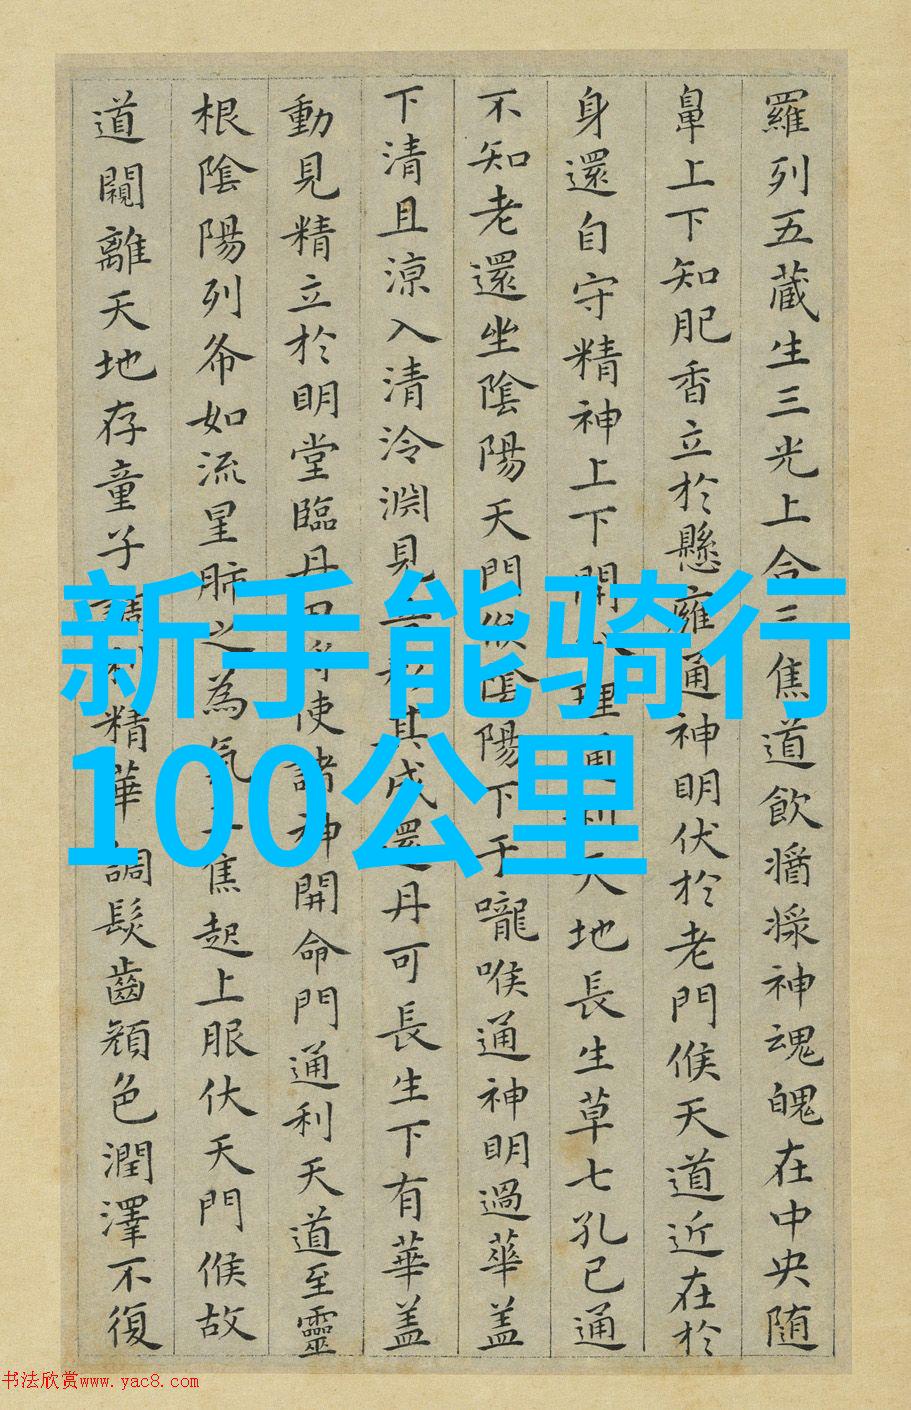 羅列五藏生三光上合三焦道飲醬漿神魂魄在中央随
鼻上下知肥香立於懸廱通神明伏於老門候天道近在於
身還自守精神上下開理通利天地長生草七孔已通
不知老還坐陰陽天門候陰陽下于嚨喉通神明過華盖
下清且涼入清泠淵見吾形其成還丹可長生下有華盖
動見精立於明堂臨丹田将使諸神開命門通利天道至靈
根陰陽列布如流星肺之為氣三焦起上服伏天門候故
道闚離天地存童子調利精華調髮齒顔色潤澤不復
新手能骑行
100公里
书法欣赏www.yac8.com